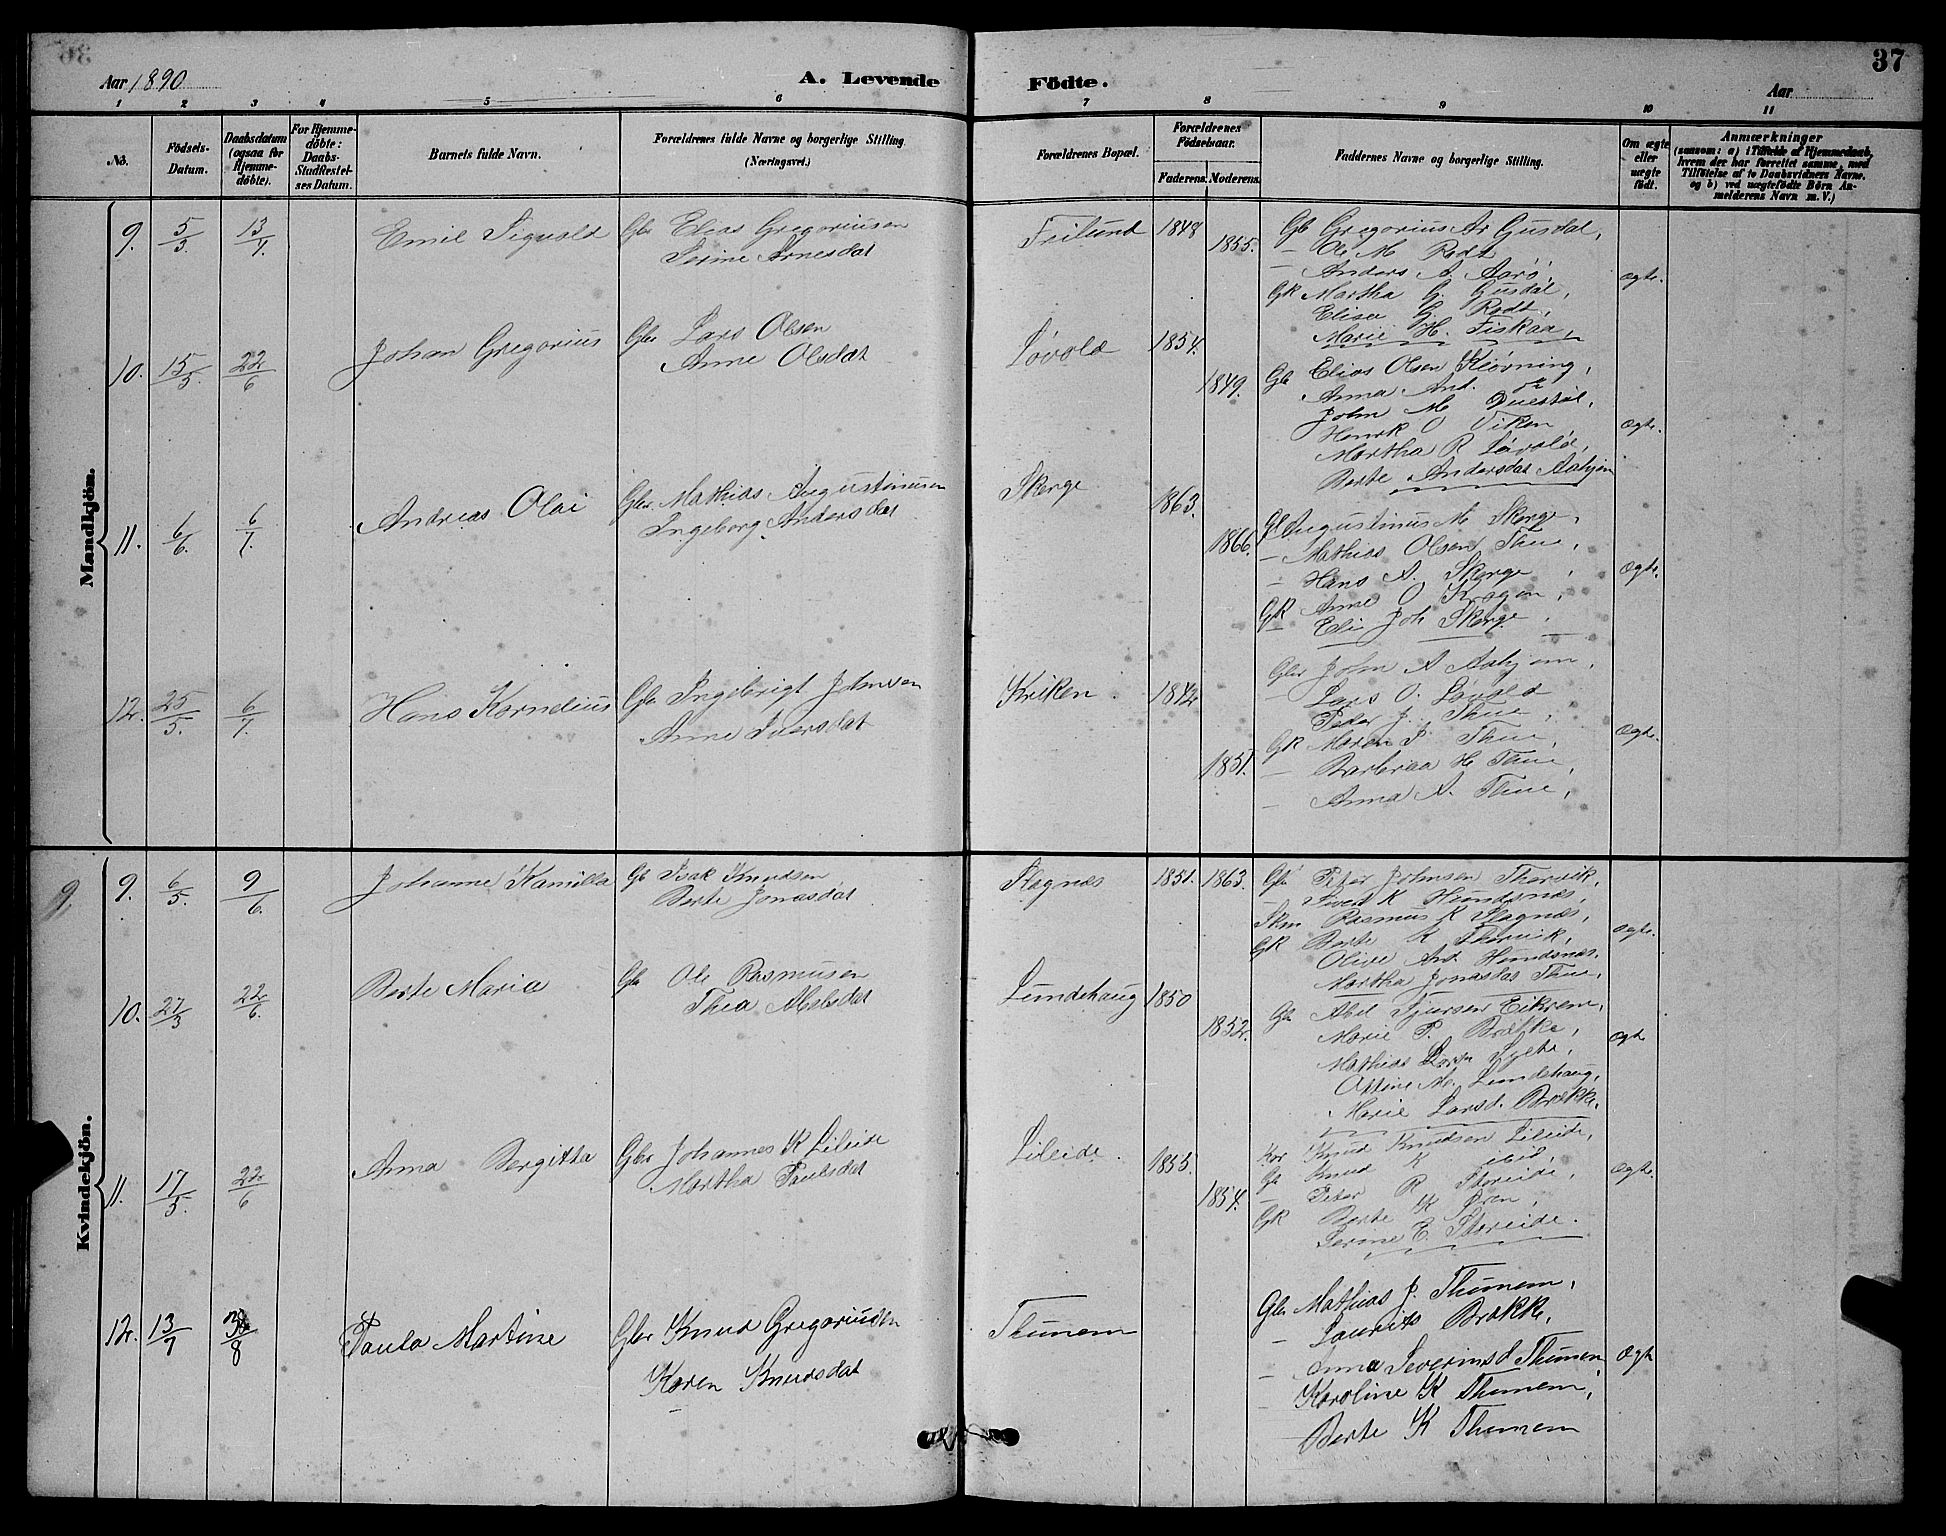 37
Aar 1890
A. Levende
Födte.
Aar
1 2 3 4 5 6 7 8 9 10 11
No.
Födsels-Datum.
Daabsdatum (ogsaa for Hjemme-döbte).
For Hjemme-döbte: Daabs-Stadfæstelses Datum.
Barnets fulde Navn.
Forældrenes fulde Navne og borgerlige Stilling. (Næringsvei.)
Forældrenes Bopæl.
Forældrenes Födselsaar.
Faderens. Moderens.
Faddernes Navne og borgerlige Stilling.
Om ægte eller uægte födt.
Anmærkninger
(saasom: a) i Tilfælde af Hjemmedaab,
hvem der har forrettet samme, med
Tilföielse af to Daabsvidners Navne,
og b) ved uægtefödte Börn An-
melderens Navn m. V.)
Mandkjön.
9. 5/3. 13/4. Emil Sigvald
Gbr Elias Gregoriusen
Serine Arnesdat
Frilund 1848 1855.
Gb Gregorius Ar Gusdal,
– Ole M Rødt
– Anders A. Aarö,
Gk Martha G. Gusdal,
Elisa G. Rødt,
Marie H. Fiskaa,
ægte.
10. 15/5. 22/6 Johan Gregorius
Gbr Lars Olsen
Anne Olsdat
Løvold 1854. 1849.
Gb Elias Olsen Kløvning,
Anna And.
John M
Henrik O Viken,
Martha R Løvold,
Berte Andersdat Aahjem
ægte.
11. 6/6. 6/7. Andreas Olai
Gbr. Mathias Augustinusen
Ingeborg Andersdat
Skerge 1863. 1866.
Gb Augustinus M. Skerge,
– Mathias Olsen Thue,
– Hans A. Skerge,
GK Anne O
– Eli Joh Skerge.
Ægte.
12. 25/5. 6/7. Hans Kornelius
Gb Ingebrigt Johnsen
Anne Iversdat
Kriken. 1842 1851.
Gbr John A Aahjem,
– Lars O. Løvold
Peder J. Thue,
GK Maren P. Thue,
– Barbraa H Thue,
– Anna A. Thue,
Ægte.
Kvindekjön.
9.
9. 6/5. 9/6. Johanne Kamilla
Gb Isak Knudsen
Berte Jonasdat
Slagnæs 1851. 1863.
Gb Peter Johnsen Thorvik,
– Sivert K Hundsnæs,
Skm Rasmus K Slagnæs,
GK Berte K Thorvik,
Olive And Hundsnæs,
Martha Jonasdat Thue,
ægte.
10. 27/3 22/6. Berte Maria
Gb Ole Rasmusen
Thea Abelsdat
Lundehaug 1850 1852.
Gb Abel Sjursen Eikrem,
Marie P. Brekke,
Mathias Lars Sylte,
Oline M. Lundehaug,
Marie Larsd. Brekke.
Ægte
11. 17/5. 22/6 Anna Bergitta
Gbr Johannes K Lileide
Martha Paulsdat
Lileide. 1855. 1854.
Kar Knud Knudsen Lileide,
Gb Knud K ibid,
– Peter R Storeide,
GK Berte K Øren,
Serine E. Storeide.
Ægte.
12. 13/7 /8 Paula Martine
Gbr Knud Gregoriusen
Karen Knudsdat
Thunem
Gbr Mathias J. Thunem,
– Laurits Brekke,
– Anna Severinsd Thunem
– Karoline K Thunem,
Berte K Thunem
Ægte